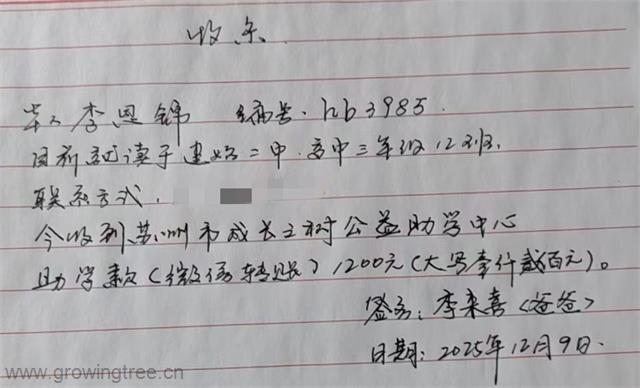 收条
本人李恩锦 编号:hb3985.
目前就读于建始二中.高中三年级12班.
联系方式.
今收到苏州市成长之树公益助学中心
助学款(微信转账)1200元(大写壹仟贰百元)。
签名:李来喜(爸爸)
日期:2025年12月9日.
www.growingtree.cn